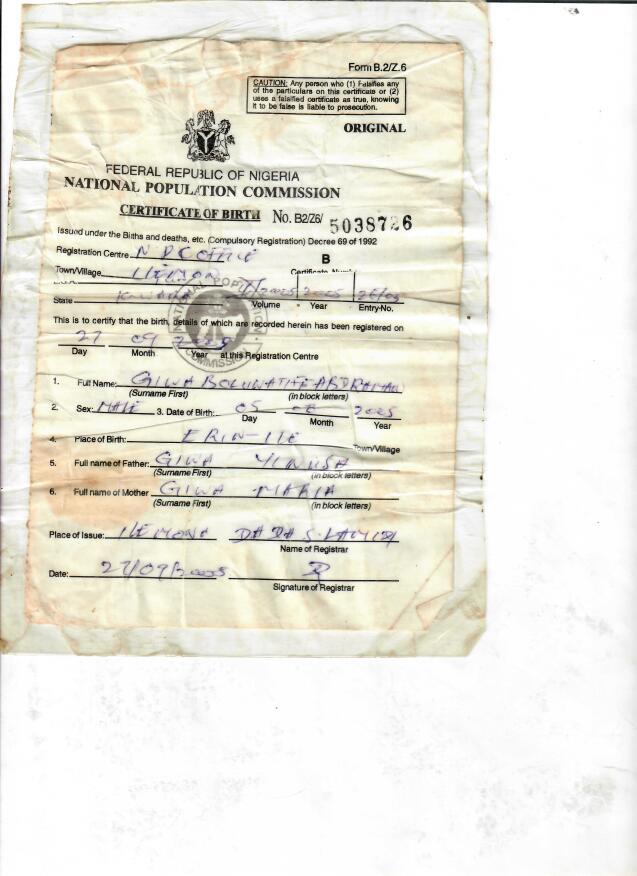 Form B.2/Z.6
CAUTION: Any person who (1) Falsifies any
of the particulars on this certificate or (2)
uses a falsified certificate as true, knowing
it to be false is liable to prosecution.
ORIGINAL
FEDERAL REPUBLIC OF NIGERIA
NATIONAL POPULATION COMMISSION
CERTIFICATE OF BIRTH No. B2/Z6/ 5038726
Issued under the Births and deaths, etc. (Compulsory Registration) Decree 69 of 1992
Registration Centre N P C OFFICE B
Town/Village
State Volume Year Entry-No.
This is to certify that the birth, details of which are recorded herein has been registered on
27 09
Day Month Year at this Registration Centre
NATIONAL POPULATION COMMISSION
1. Full Name: GIWA
(Surname First) (in block letters)
2. Sex: MALE 3. Date of Birth: 05
Day Month Year
4. Place of Birth: ERIN-ILE Town/Village
5. Full name of Father: GIWA YINUSA
(Surname First) (in block letters)
6. Full name of Mother GIWA MARIA
(Surname First) (in block letters)
Place of Issue: ILEMONA DADA S.
Name of Registrar
Date: 27/09/
Signature of Registrar